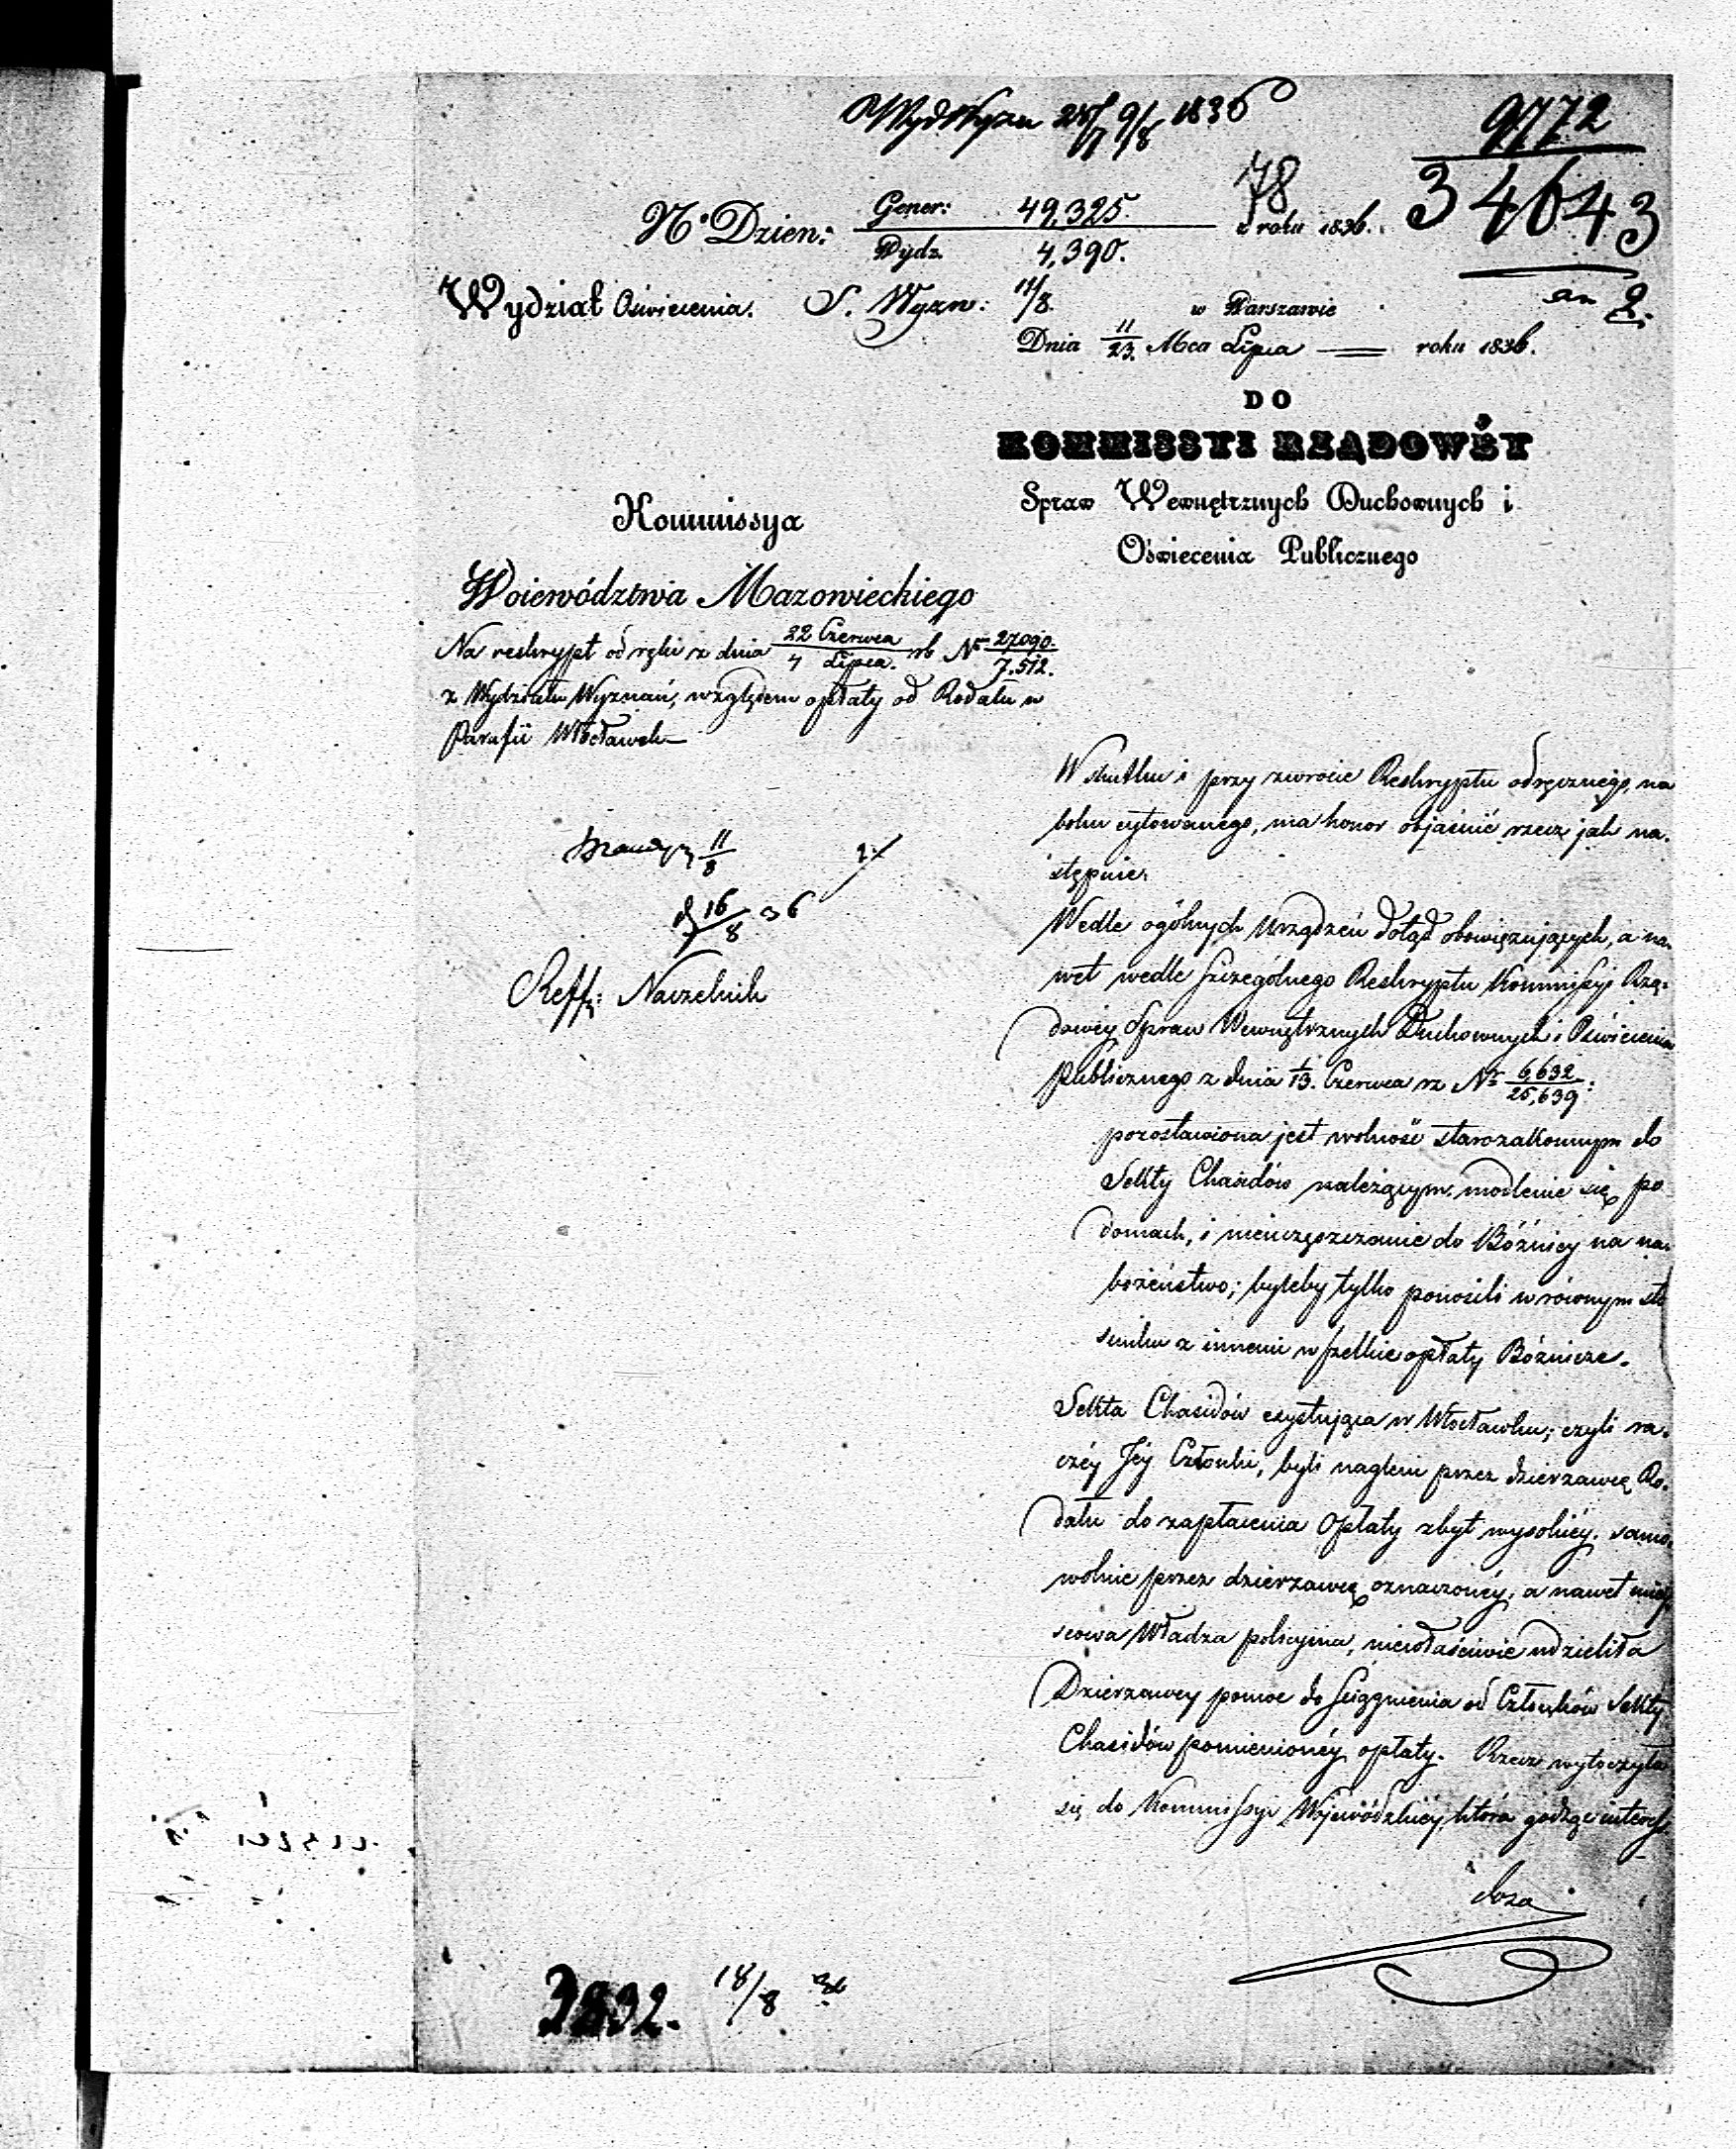 WydWyzn 25/7 9/8 1836
9772
34643
an 2.
78
N° Dzien: Gener: 49,325. z roku 1836.
Wydz. 4,390.
Wydział Oświecenia. S. Wyzn: 11/8. w Warszawie
Dnia 11/23. Mca Lipca roku 1836.
DO
KOMMISSYI RZĄDOWÉY
Spraw Wewnętrznych Duchownych i
Oświecenia Publicznego
Kommissya
Woiewództwa Mazowieckiego
Na reskrypt odręki z dnia 22 Czerwca / 4 Lipca. rb № 27090. / 7.512.
z Wydziału Wyznań, względem opłaty od Rodału w
Parafii Włocławek
11/8
16/8 36
Reff: Naczelnik
W skutku i przy zwrocie Reskryptu odręcznego, na
boku cytowanego, ma honor objaśnić rzecz jak na-
stępnie.
Wedle ogólnych Urządzeń dotąd obowięzujących, a na-
wet wedle szczególnego Reskryptu Kommissyi Rzą-
dowéy Spraw Wewnętrznych Duchownych i Oświecenia
Publicznego z dnia 1/13. Czerwca rz Nr 6632 / 25,639:
pozostawiona jest wolność starozakonnym do
Sekty Chasidów należącym, modlenie się po
domach, i nieuczęszczanie do Bóżnicy na na-
bożeństwo; byleby tylko ponosili w równym sto
sunku z innemi wszelkie opłaty Bóżnicze.
Sekta Chasidów exystująca w Włocławku, czyli ra-
czéy Jéy Członki, byli nagleni przez dzierzawcę Ro-
dału do zapłacenia Opłaty zbyt wysokiéy, samo-
wolnie przez dzierzawcę oznaczonéy, a nawet miej
scowa Władza policyina, niewłaściwie udzieliła
Dzierzawcy pomoc do ściągnienia od Członków Sekty
Chasidów pomienionéy opłaty. Rzecz wytoczyła
się do Kommissyi Wojewódzkiéy, która godząc interes
2832. 18/8 36